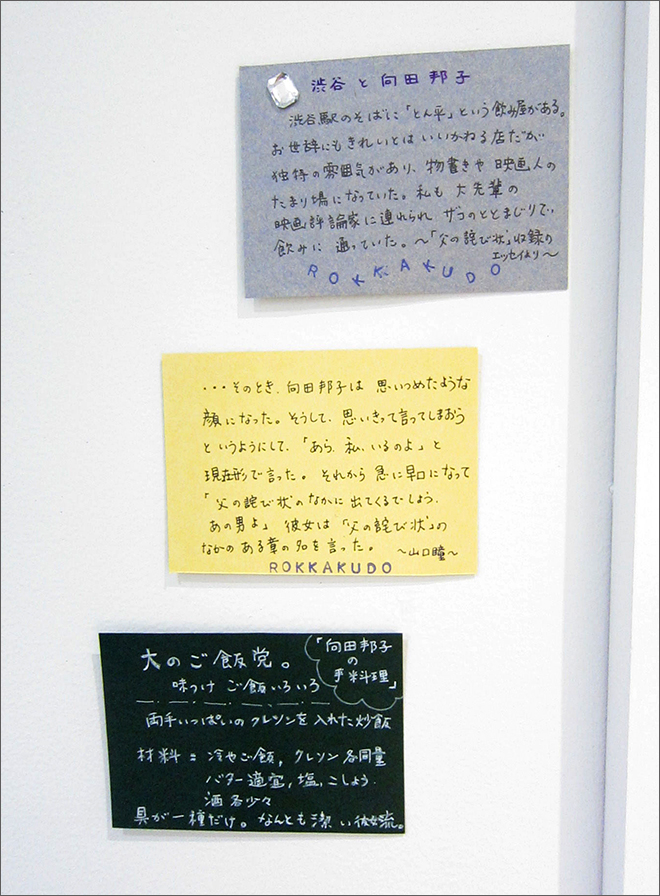 渋谷と向田邦子
渋谷駅のそばに「とん平」という飲み屋がある。
お世辞にもきれいとはいいかねる店だが
独特の雰囲気があり、物書きや映画人の
たまり場になっていた。私も大先輩の
映画評論家に連れられザコのととまじりで、
飲みに通っていた。～「父の詫び状」収録の
エッセイより～
ROKKAKUDO
・・・そのとき、向田邦子は思いつめたような
顔になった。そうして、思いきって言ってしまおう
というようにして、「あら、私、いるのよ」と
現在形で言った。それから急に早口になって
「父の詫び状のなかに出てくるでしょう、
あの男よ」彼女は「父の詫び状」の
なかのある章の名を言った。～山口瞳～
ROKKAKUDO
大のご飯党。
「向田邦子
の
手料理」
味つけご飯いろいろ
両手いっぱいのクレソンを入れた炒飯
材料＝冷やご飯，クレソン各同量
バター適宜，塩，こしょう．
酒各少々
具が一種だけ。なんとも潔い彼女流。